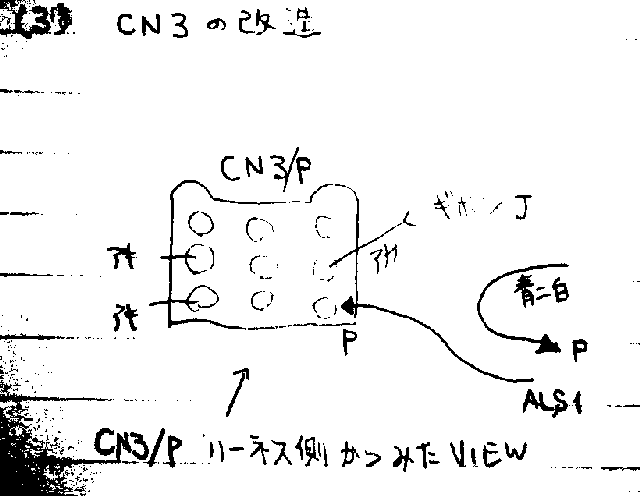 (3) CN3の改造
CN3/P
ギボシJ
アキ
アカ
アキ
青ニ白
P
P
ALS1
CN3/P ハーネス側からみたVIEW